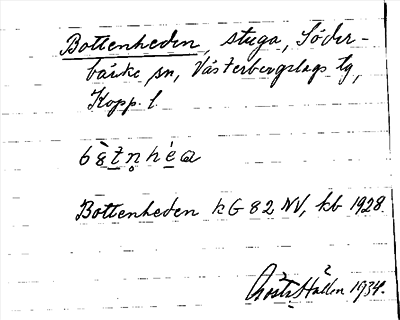 Bottenheden, stuga, Söder-
bärke sn, Västerbergslags tg,
Kopp. l.
Bottenheden kG 82 NV, kb 1928
Hållen 1934.